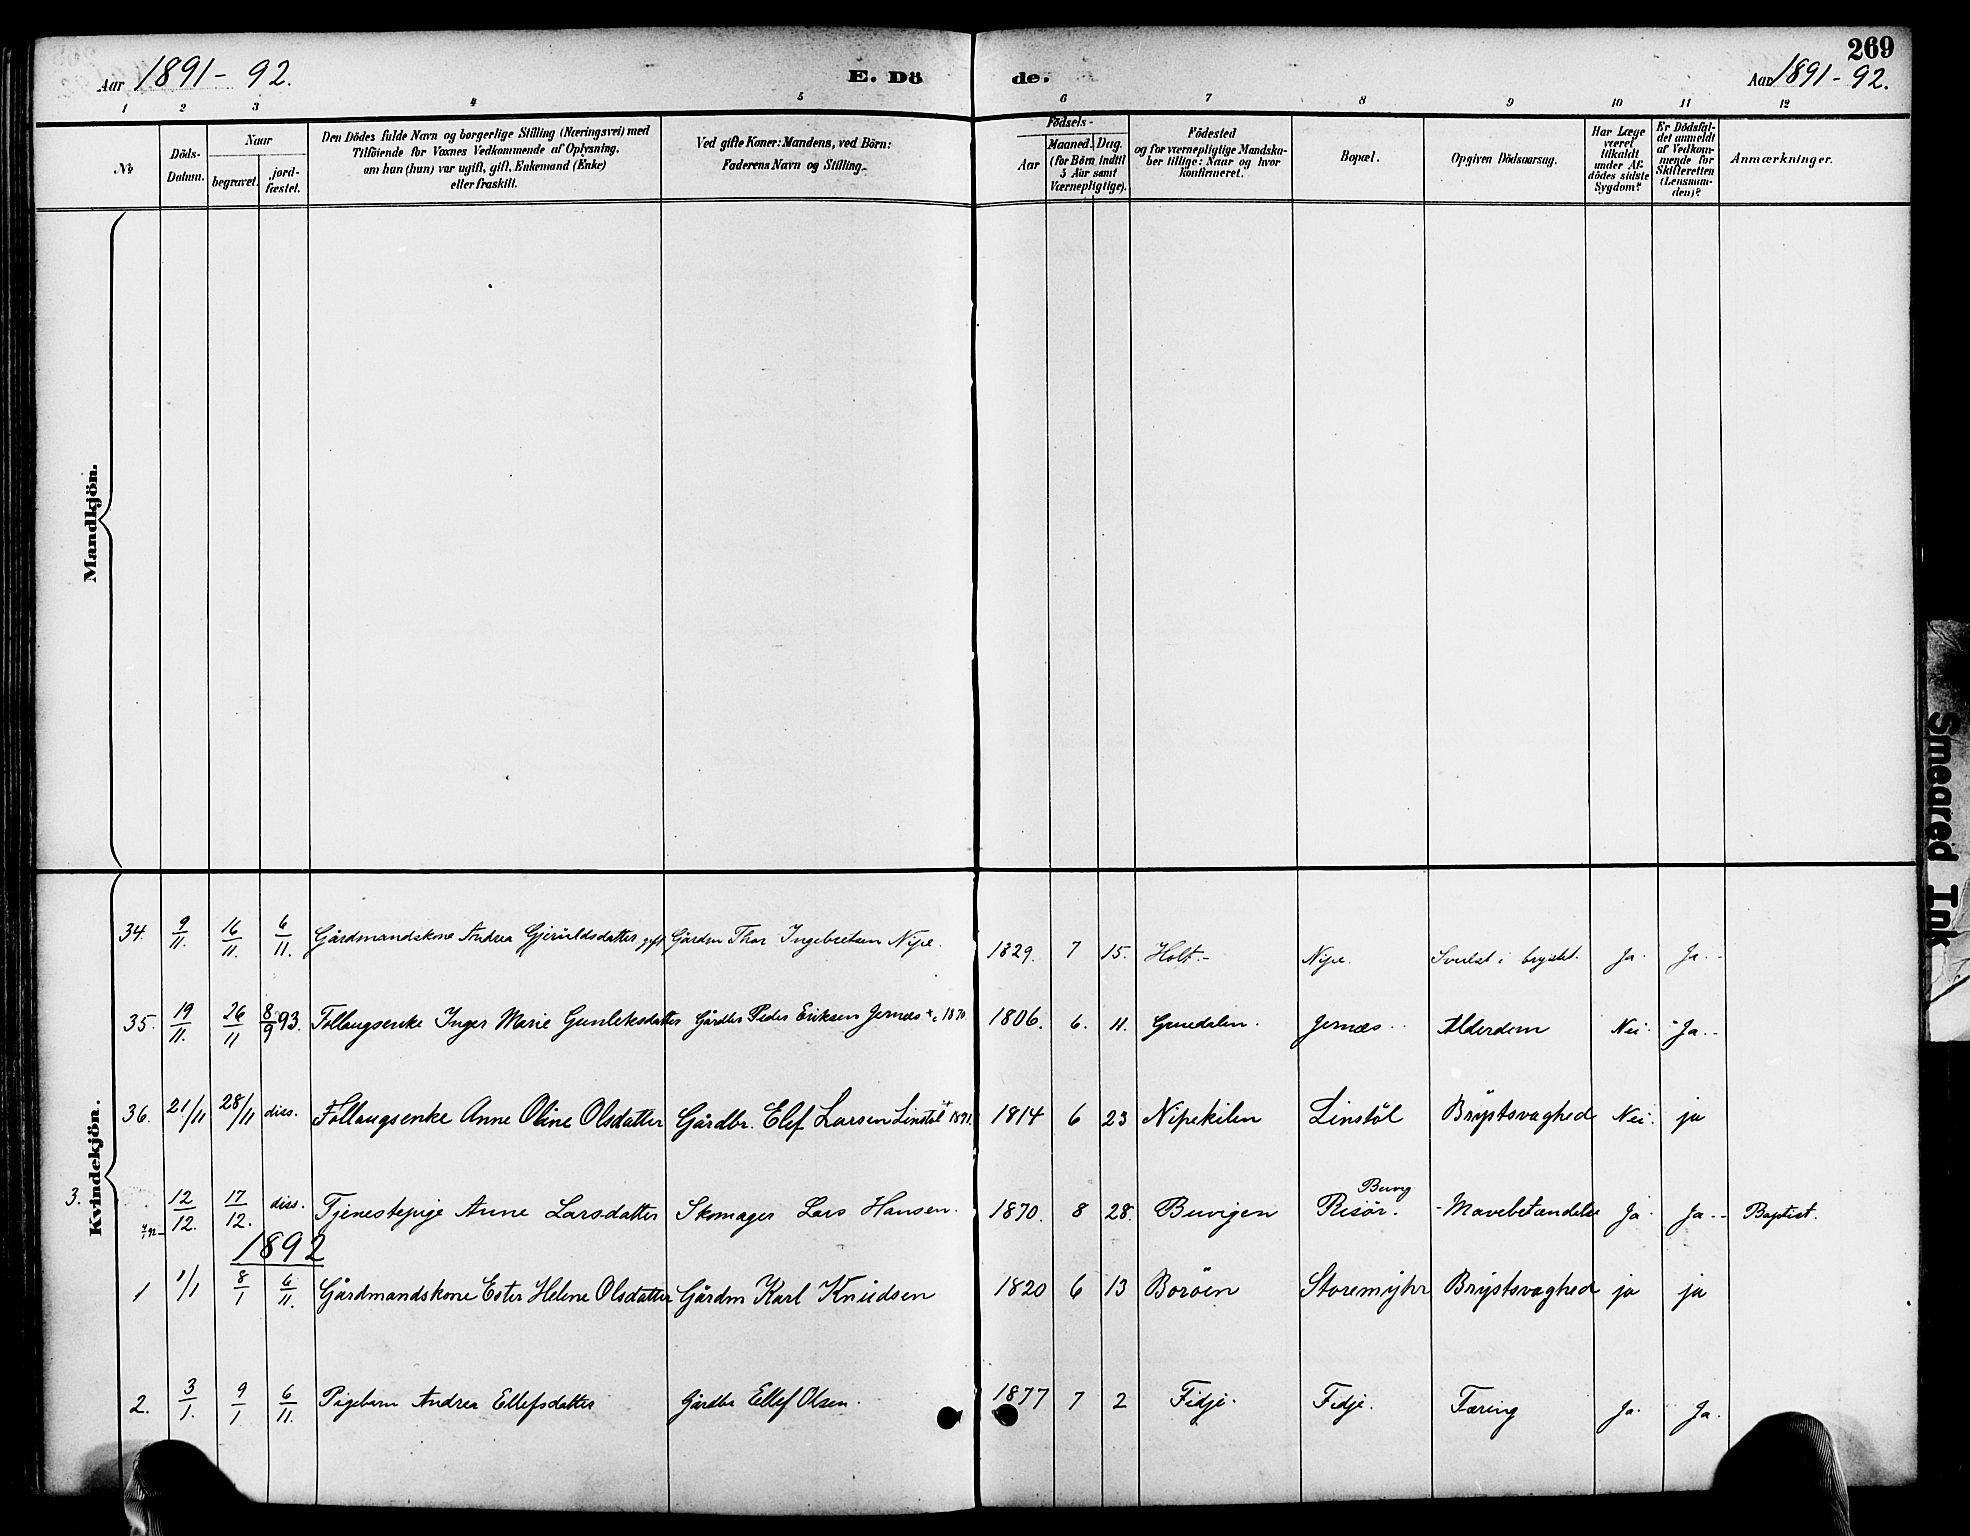 269
Aar 1891-92. E. Döde. Aar 1891-92.
1 2 3 4 5 6 7 8 9 10 11 12
No
Döds-Datum.
Naar
begravet. jord-fæstet.
Den Dödes fulde Navn og borgerlige Stilling (Næringsvei) med
Tilföiende for Voxnes Vedkommende af Oplysning,
om han (hun) var ugift, gift, Enkemand (Enke)
eller fraskilt.
Ved gifte Koner: Mandens, ved Börn:
Faderens Navn og Stilling.
Födsels-
Aar Maaned. Dag.
(for Börn indtil
5 Aar samt
Værnepligtige).
Födested
og for værnepligtige Mandska-
ber tillige: Naar og hvor
konfirmeret.
Bopæl.
Opgiven Dödsaarsag.
Har Læge
været
tilkaldt
under Af-
dödes sidste
Sygdom?
Er Dödsfal-
det anmeldt
af Vedkom-
mende for
Skifteretten
(Lensman-
den)?
Anmærkninger.
Mandkjön.
Kvindekjön.
34. 9/11. 16/11. 6/11. Gårdmandskone Andrea Gjeruldsdatter gift Gårdm Thor Ingebretsen Nipe. 1829. 7 15. Holt.- Nipe. Svulst i brystet. Ja. Ja.-
35. 19/11. 26/11 8/9 93. Follaugsenke Inger Marie Gunleksdatter Gårdbr Peder Eriksen Jernæs + 1870. 1806. 6. 11. Gjernæs.. Alderdom Nei. Ja.-
36. 21/11 28/11 diss. Follaugsenke Anne Oline Olsdatter Gårdbr. Elef Larsen Linstöl + 1891. 1814 6 23 Nipekilen Linstöl Brystsvaghed Nei. ja
3. 12/12. 17/12. diss. Tjenestepige Anne Larsdatter Skomager Lars Hansen. 1870. 8 28. Buvigen Buvig Risör. Mavebetændelse Ja. Ja.- Baptist.
1892
1 1/1 8/1 6/11. Gårdmandskone Ester Helene Olsdatter Gårdm Karl Knudsen 1820 6 13 Boröen Storemyhr Brystsvaghed ja ja
2. 3/1. 9/1 6/11. Pigebarn Andrea Ellefsdatter Gårdbr Ellef Olsen. 1877 7 2 Fidje. Fidje. Tæring Ja. Ja.
Smeared Ink